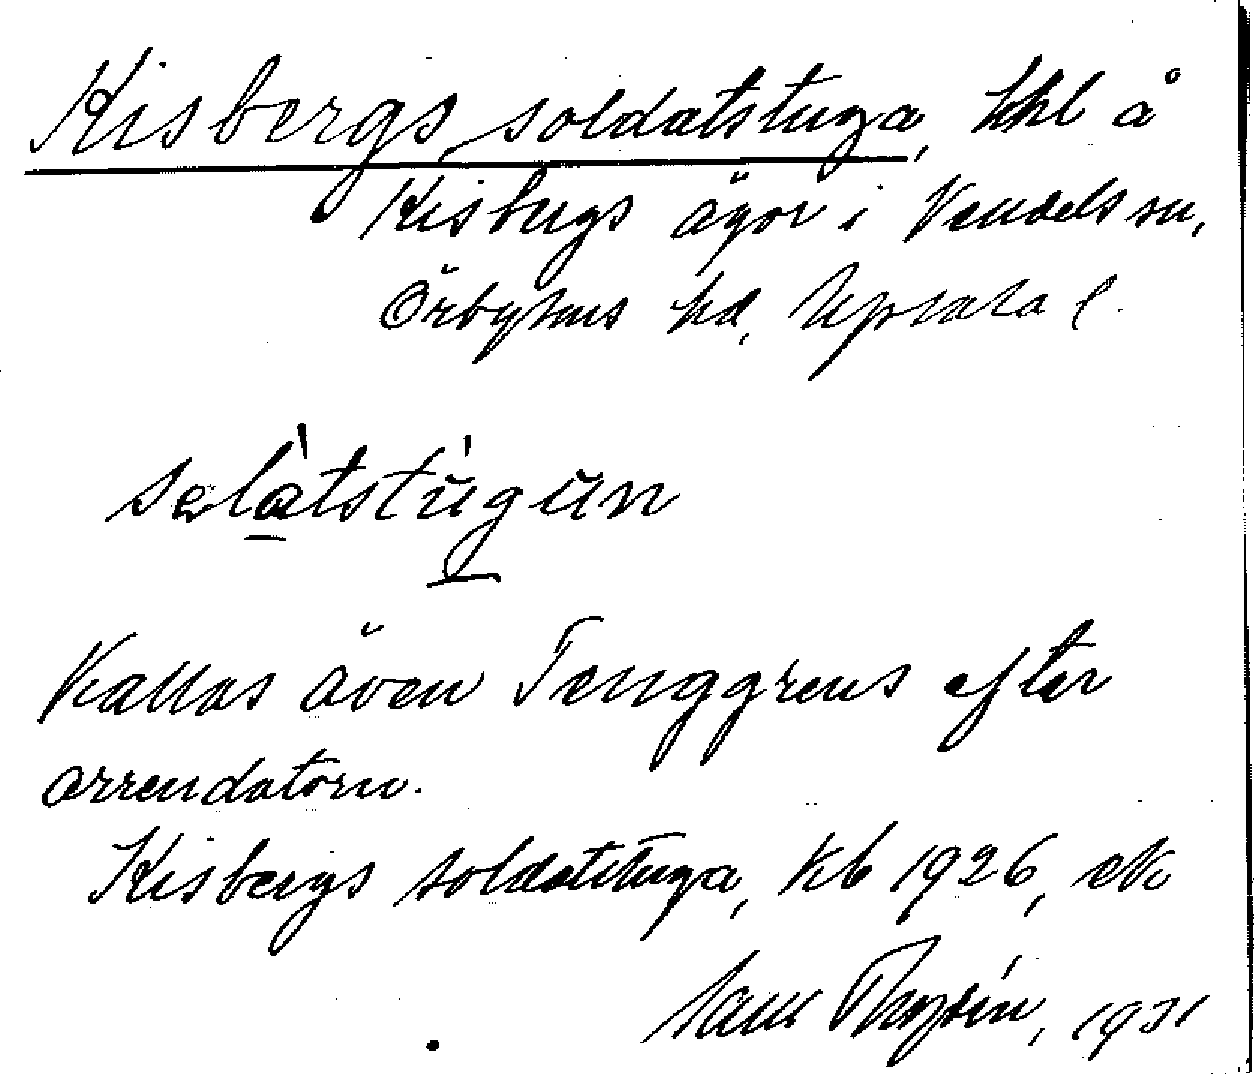 Kisbergs soldatstuga, lhl å
Kisbergs ägor i Vendels sn,
Örbyhus hd, Uppsala l.
selàtstùgun
Kallas även Tenggrens efter
arrendatorn.
Kisbergs soldatstuga, Kb 1926, ek
1931